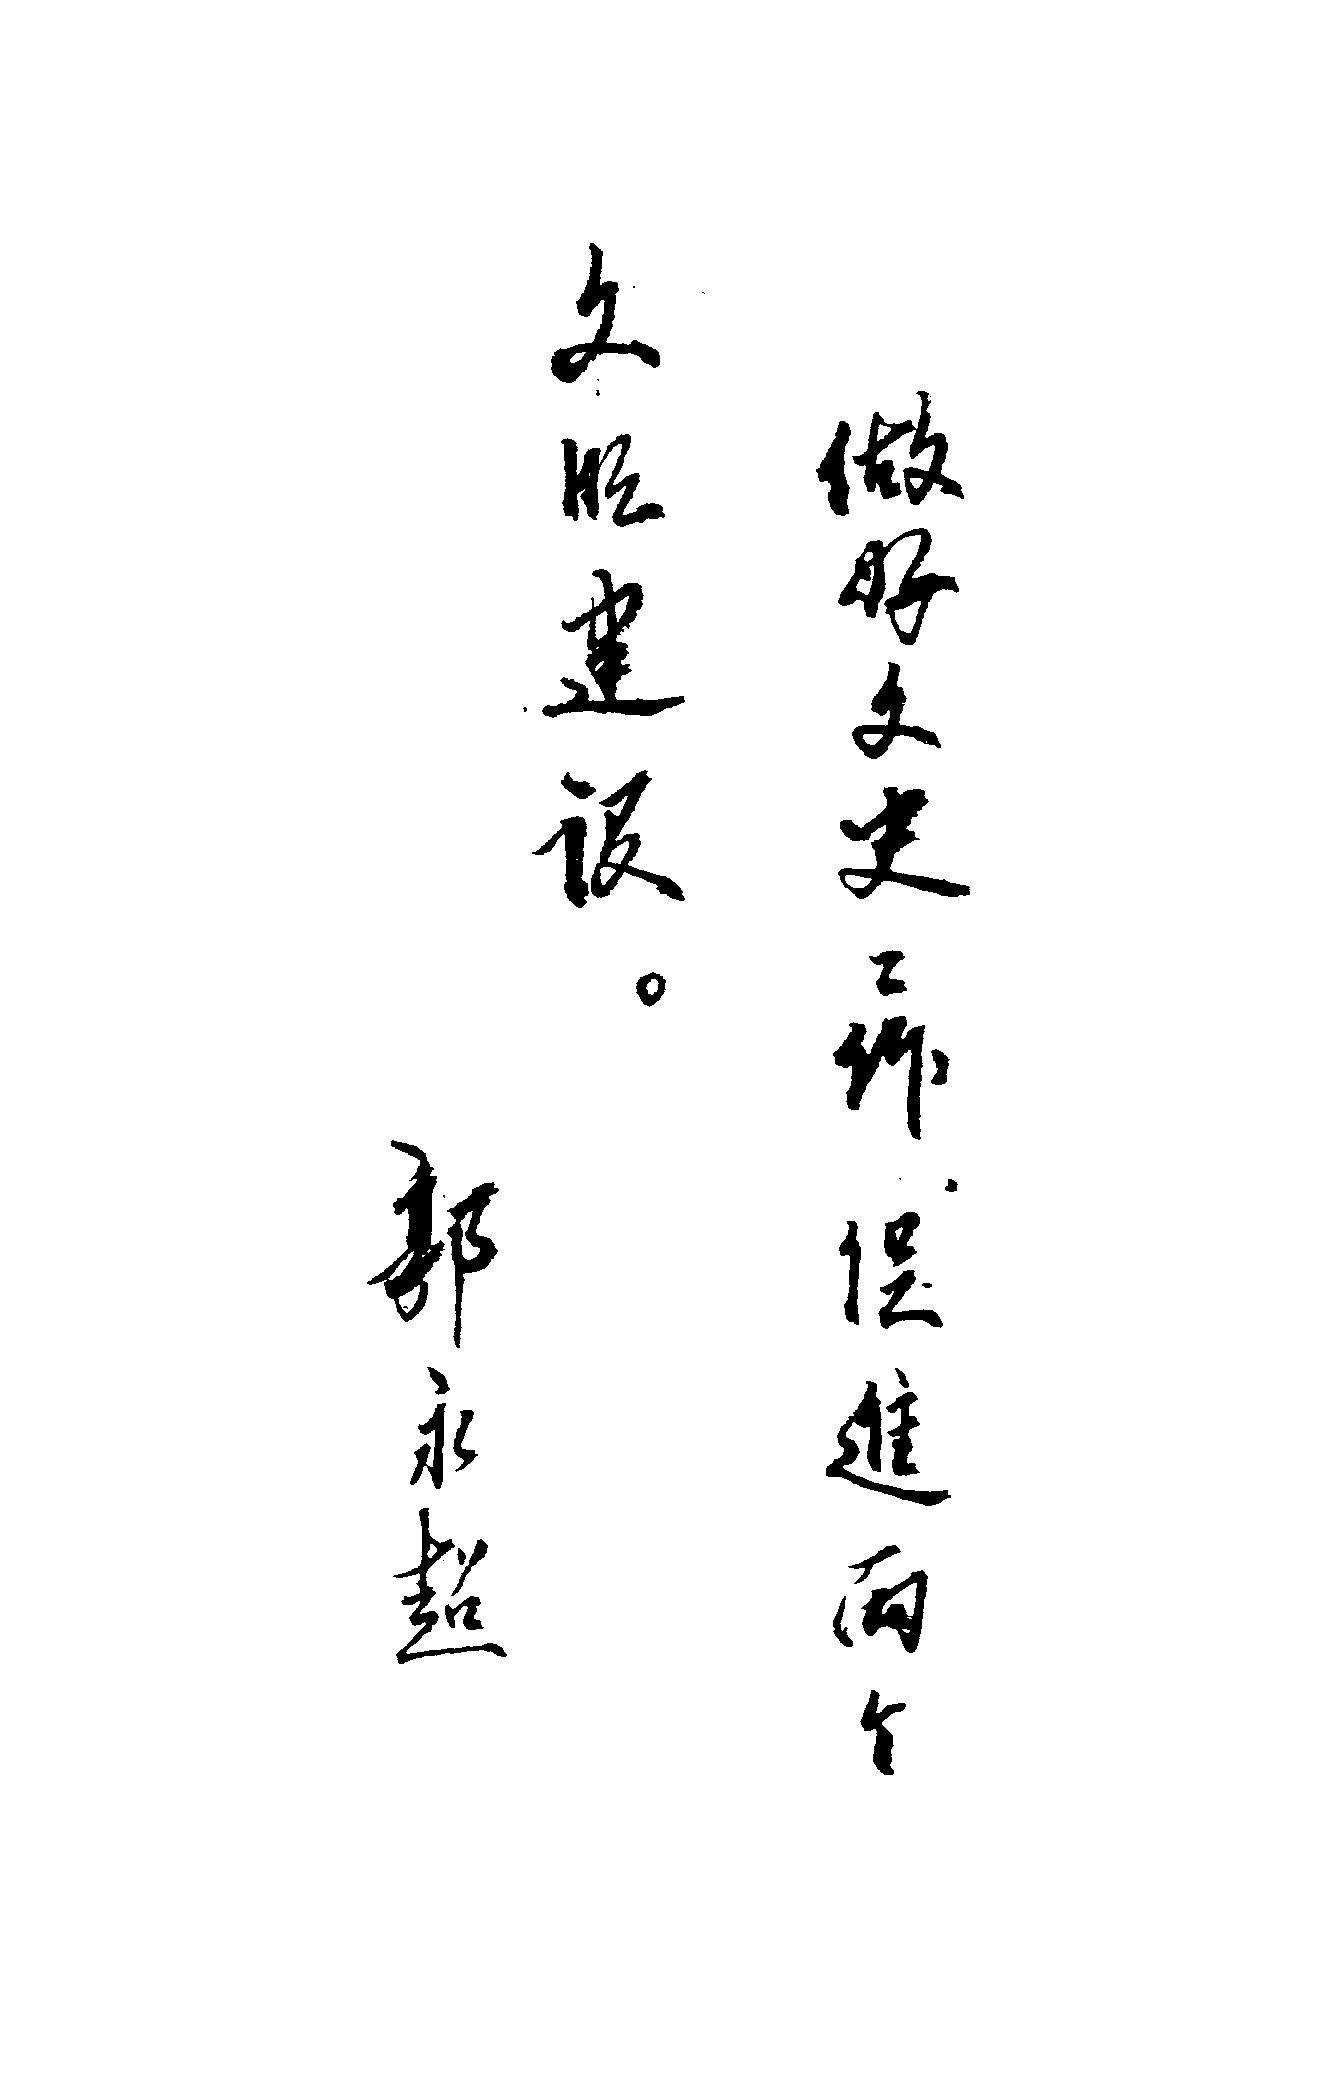 做好文史工作.促進两个
文明建设。
郭永超